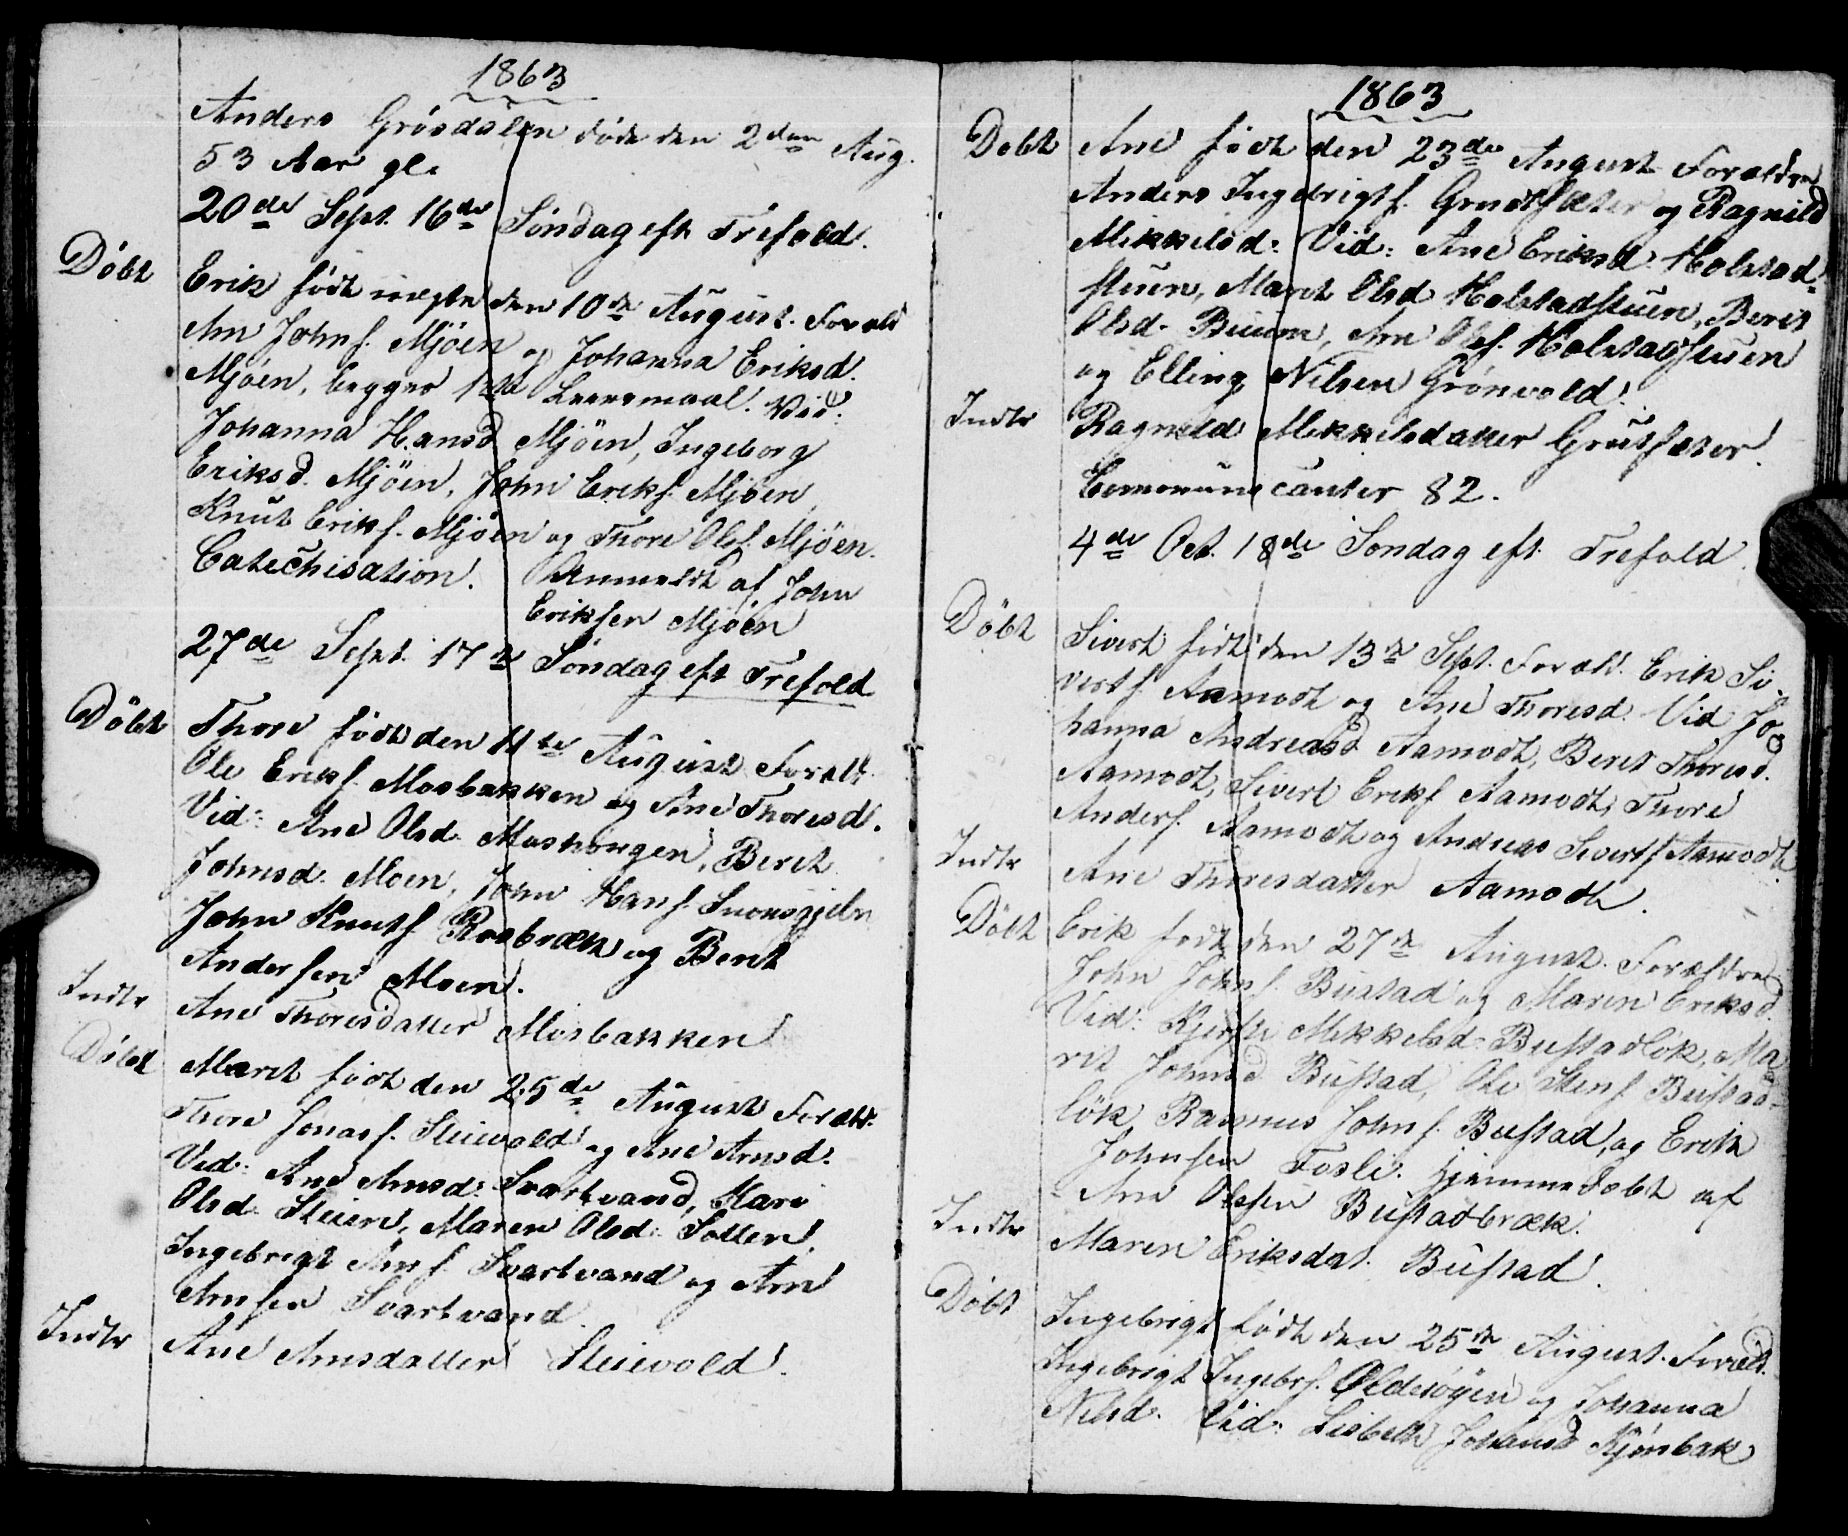 1863
Anders Grøsdalen döde den 2den Aug.
53 Aar gl.
20de Sept. 16de Söndag eft Trefold.
Döbt Erik födt uægte den 10de August. Foræld
Arn Johnf. Mjöen og Johanna Eriksd.
Mjöen, begges 1ste Leiermaal. Vid:
Johanna Hansd Mjöen, Ingeborg
Eriksd. Mjöen, John Erikf. Mjöen,
Knut Erikf. Mjöen og Thore Olsf. Mjöen.
Catechisation. Anmeldt af John
Eriksen Mjöen
27de Sept. 17de Söndag eft Trefold
Döbt Thore födt den 11te August Foræld.
Ole Erikf. Mosbakken og Ane Thoresd.
Vid: Ane Olsd. Moshougen, Beret
Johnsd. Moen, John Hansf.
John Knutf. Roobræk og Berit
Andersen Moen.
Indtr Ane Thoresdatter Mosbakken
Döbt Maret födt den 25de August Foræld.
Thore Jonasf. Steievold og Ane Arnsd.
Vid: Ane Arnsd. Svartvand, Kari
Olsd. Steien, Maren Olsd.
Ingebrigt Arnf. Svartvand og Arn
Arnsen Svartvand.
Indtr Ane Arnsdatter Steievold.
1863
Döbt Ane födt den 23de August Forældre
Anders Ingebrigtf. Grutsæter og Ragnild
Mikkelsd. Vid: Ane Eriksd. Holstad-
stuen, Maret Olsd Holstadstuen, Berit
Olsd. Buum, Arn Olsf. Holstadstuen
og Elling Nilsen Grönvold.
Indtr Ragnild Mikkelsdatter Grutsæter.
Communicanter 82.
4de Oct. 18de Söndag eft. Trefold.
Döbt Sivert födt den 13de Sept. Foræld. Erik Si-
vertf. Aamodt og Ane Thoresd. Vid Jo-
hanna Andreasd Aamodt, Beret Thoresd.
Aamodt, Sivert Erikf Aamodt, Thore
Andersf. Aamodt og Andreas Sivertf Aamodt.
Indtr Ane Thoresdatter Aamodt.
Döbt Erik födt den 27de August. Forældre
John Johnf. Bustad og Maren Eriksd.
Vid: Kjersti Mikkelsd. Bustadlök, Ma-
rit Johnsd Bustad, Ole Stenf. Bustad-
lök, Rasmus Johnf. Bustad, og Erik
Johnsen Fosli. Hjemmedöbt af
Arn Olsen Bustadbræk.
Indtr Maren Eriksdat. Bustad.
Döbt Ingebrigt födt den 25de August. Foræld.
Ingebrigt Ingebrf. Oldesöyen og Johanna
Nilsd. Vid: Lisbeth Johansd Kjönbak